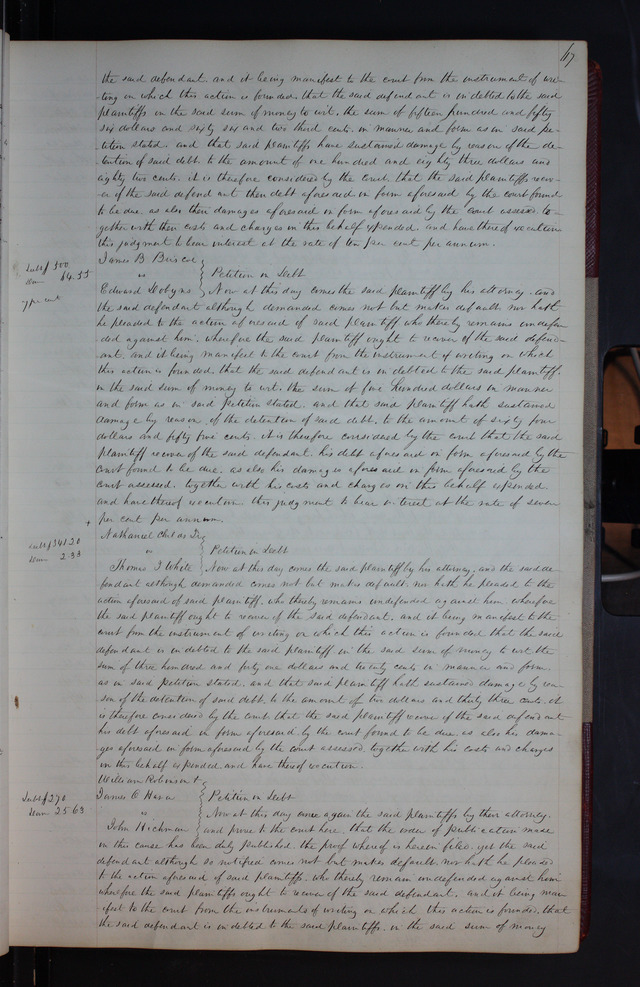 67
the said defendant. and it being manifest to the court from the instrument of wri-
-ting on which this action is founded, that the said defendant is indebted to the said
plaintiffs in the said sum of money to wit, the sum of fifteen hundred and fifty
six dollars and sixty six and two third cents, in manner and form as in said pe-
tition stated, and that said plaintiffs have sustained damage by reason of the de-
tention of said debt, to the amount of one hundred and eighty three dollars and
eighty two cents. it is therefore considered by the Court, that the said plaintiffs recov-
er of the said defendant their debt aforesaid in form aforesaid by the court found
to be due, as also their damages aforesaid in form aforesaid by the court assessed, to-
gether with their costs and charges in this behalf expended, and have thereof execution
this judgment to bear interest at the rate of ten per cent per annum.
James B Briscoe
Debt $500
Dam 64.55
vs } Petition in Debt
7 per cent
Edward Dobyns } Now at this day comes the said plaintiff by his attorney. and
the said defendant although demanded comes not but makes default. nor hath
he pleaded to the action aforesaid of said plaintiff who thereby remains undefen-
ded against him, wherefore the said plaintiff ought to recover of the said defend-
ant. and it being manifest to the court from the instrument of writing on which
this action is founded, that the said defendant is indebted to the said plaintiff
in the said sum of money to wit, the sum of five hundred dollars in manner
and form as in said petition stated, and that said plaintiff hath sustained
damage by reason of the detention of said debt, to the amount of sixty four
dollars and fifty five cents. it is therefore considered by the court that the said
plaintiff recover of the said defendant, his debt aforesaid in form aforesaid by the
court found to be due, as also his damages aforesaid in form aforesaid by the
court assessed, together with his costs and charges in this behalf expended
and have thereof execution this judgment to bear interest at the rate of seven
per cent per annum.
Nathaniel Childs Jr
Debt $341.20
Dam 2.33
vs } Petition in Debt
Thomas J White } Now at this day comes the said plaintiff by his attorney, and the said de-
fendant although demanded comes not but makes default. nor hath he pleaded to the
action aforesaid of said plaintiff, who thereby remains undefended against him wherefore
the said plaintiff ought to recover of the said defendant, and it being manifest to the
court from the instrument of writing on which this action is founded that the said
defendant is indebted to the said plaintiff in the said sum of money to wit the
sum of three hundred and forty one dollars and twenty cents in manner and form
as in said petition stated, and that said plaintiff hath sustained damage by rea-
son of the detention of said debt, to the amount of two dollars and thirty three cents. it
is therefore considered by the court that the said plaintiff recover of the said defendant
his debt aforesaid in form aforesaid by the court found to be due, as also his dama-
ges aforesaid in form aforesaid by the court assessed, together with his costs and charges
in this behalf expended and have thereof execution.
William Robinson +
Debt $290
Dam 25.63
James C } Petition in Debt
vs } Now at this day come again the said plaintiffs by their attorney,
John Hickman } and prove to the court here, that the order of publication made
in this cause has been duly published, the proof whereof is herein filed. yet the said
defendant although so notified comes not but makes default. nor hath he pleaded
to the action aforesaid of said plaintiffs. who thereby remain undefended against him
wherefore the said plaintiffs ought to recover of the said defendant. and it being man-
ifest to the court from the instruments of writing on which this action is founded, that
the said defendant is indebted to the said plaintiffs in the said sum of money